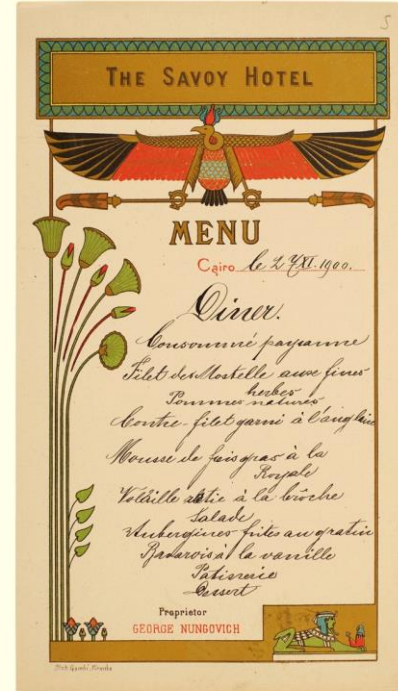 5
THE SAVOY HOTEL
MENU
Cairo le 2 XI. 1900.
Diner.
Consommé paysanne
Filet de Mostelle aux fines
herbes
Pommes natures
Contre-filet garni à l'anglaise
Mousse de foie gras à la
Royale
Volaille rôtie à la broche
Salade
Aubergines frites au gratin
Bavarois à la vanille
Patisserie
Dessert
Proprietor
GEORGE NUNGOVICH